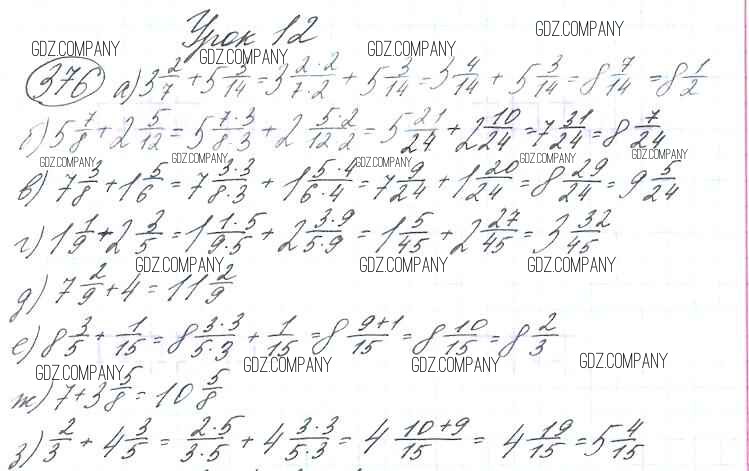 Урок 12
GDZ.COMPANY GDZ.COMPANY GDZ.COMPANY GDZ.COMPANY
376 а) 3 2/7 + 5 3/14 = 3 2·2/7·2 + 5 3/14 = 3 4/14 + 5 3/14 = 8 7/14 = 8 1/2
б) 5 7/8 + 2 5/12 = 5 7·3/8·3 + 2 5·2/12·2 = 5 21/24 + 2 10/24 = 7 31/24 = 8 7/24
GDZ.COMPANY GDZ.COMPANY GDZ.COMPANY GDZ.COMPANY
в) 7 3/8 + 1 5/6 = 7 3·3/8·3 + 1 5·4/6·4 = 7 9/24 + 1 20/24 = 8 29/24 = 9 5/24
г) 1 1/9 + 2 3/5 = 1 1·5/9·5 + 2 3·9/5·9 = 1 5/45 + 2 27/45 = 3 32/45
GDZ.COMPANY GDZ.COMPANY GDZ.COMPANY
д) 7 2/9 + 4 = 11 2/9
е) 8 3/5 + 1/15 = 8 3·3/5·3 + 1/15 = 8 9+1/15 = 8 10/15 = 8 2/3
GDZ.COMPANY GDZ.COMPANY GDZ.COMPANY GDZ.COMPANY
ж) 7 + 3 5/8 = 10 5/8
з) 2/3 + 4 3/5 = 2·5/3·5 + 4 3·3/5·3 = 4 10+9/15 = 4 19/15 = 5 4/15